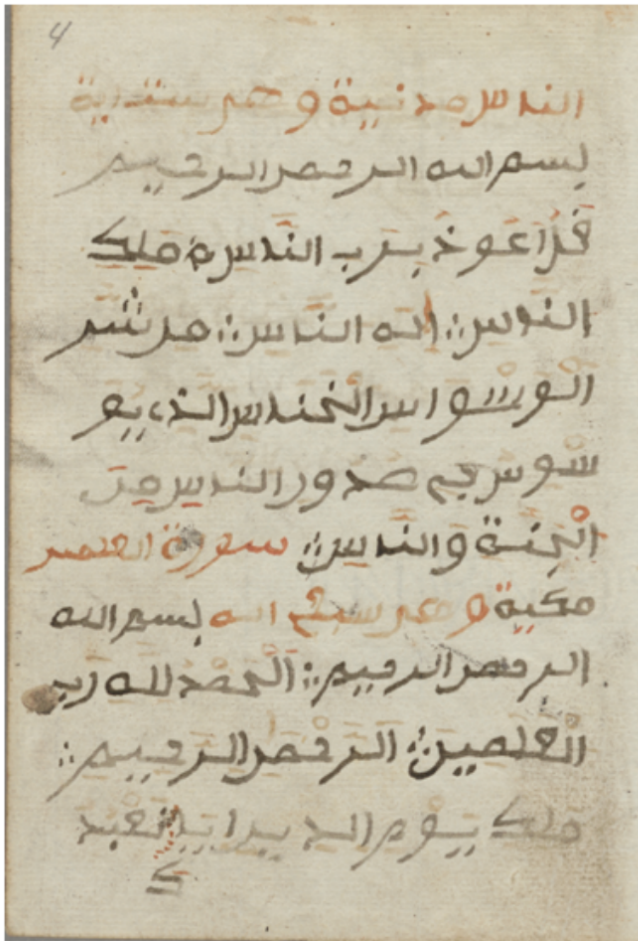 4
الناس مدنية وهي ست ءاية
بسم الله الرحمن الرحيم
قل اعوذ برب الناس ملك
الناس اله الناس من شر
الوسواس الخناس الذي يو
سوس في صدور الناس من
الجنة والناس سورة الحمد
مكية وهي سبع اية بسم الله
الرحمن الرحيم الحمد لله رب
العلمين الرحمن الرحيم
ملك يوم الدين اياك نعبد